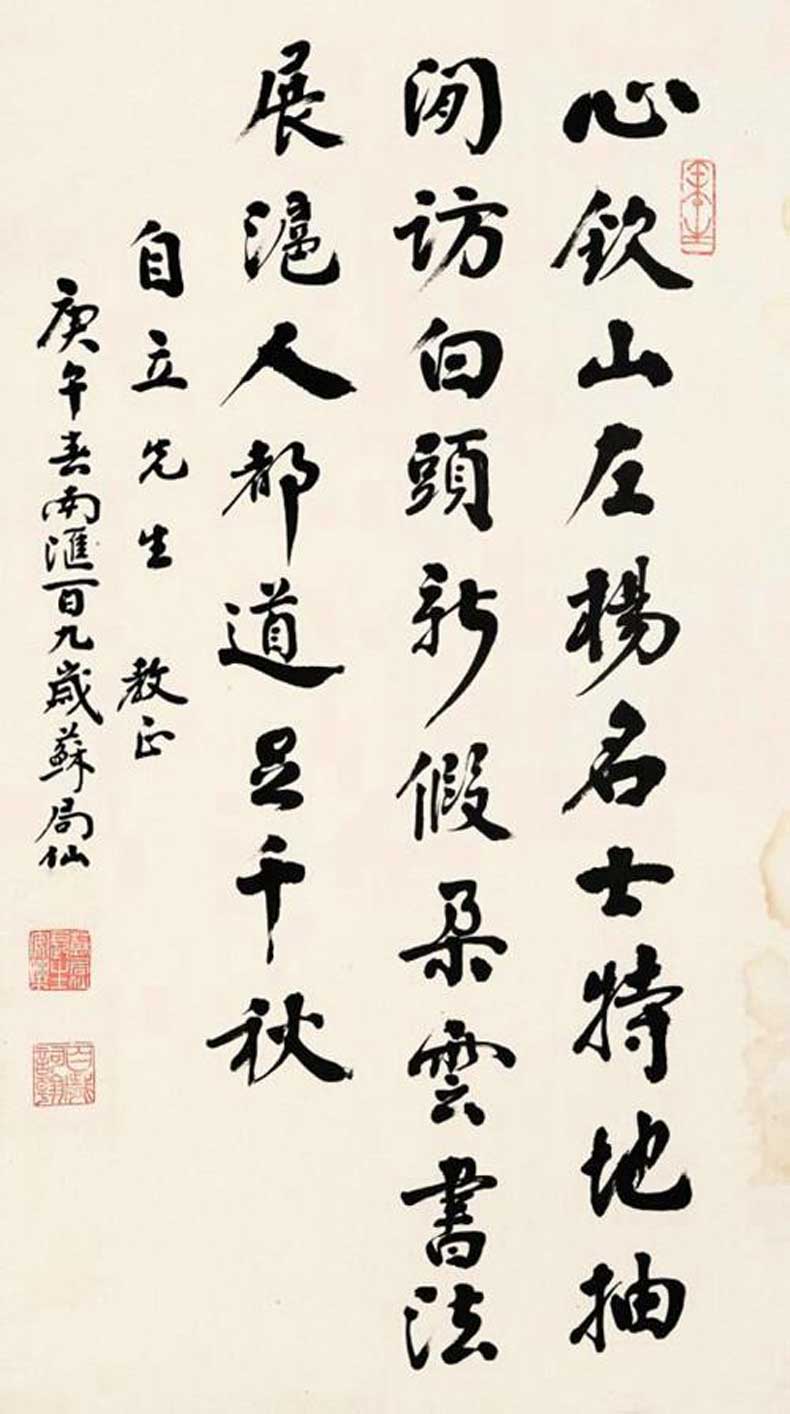 心欽山左楊名士特地抽
閒访白頭新假朵雲書法
展滬人都道足千秋
自立先生 教正
庚午春南滙百九歲蘇局仙